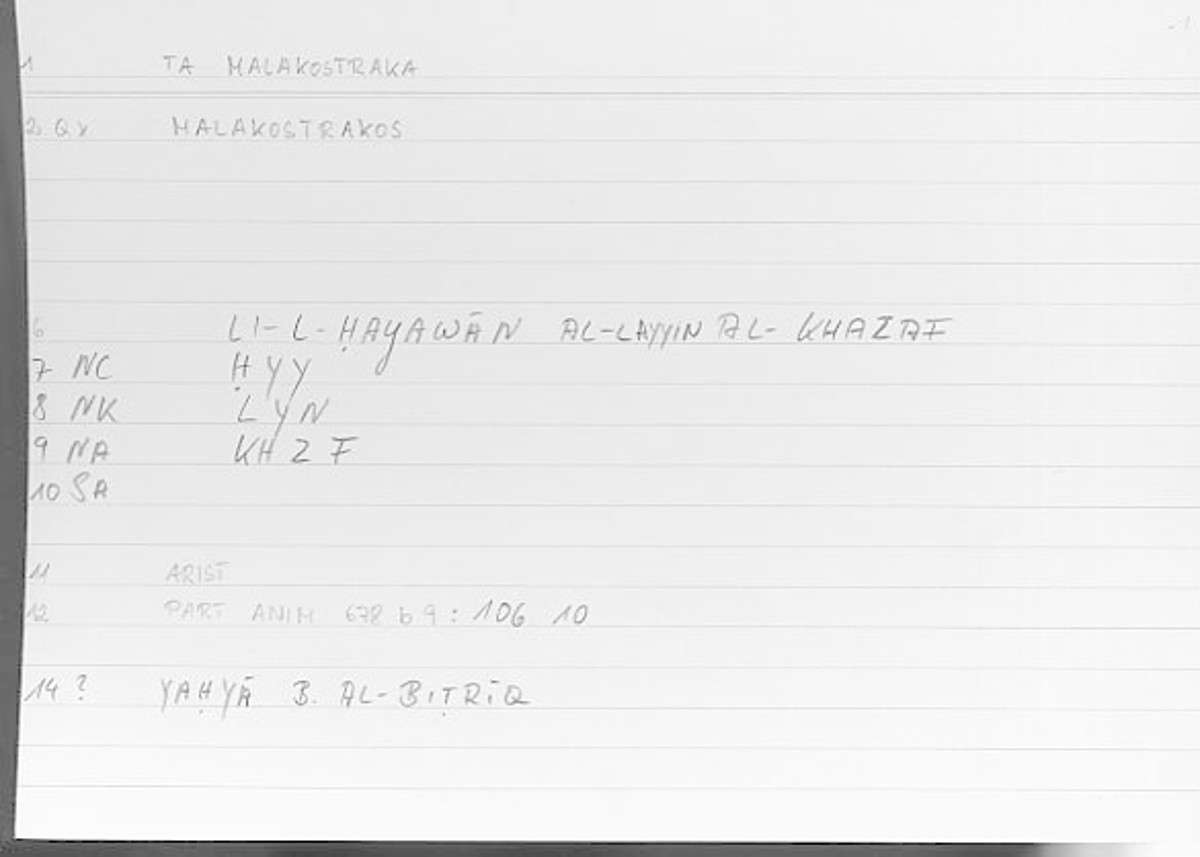 1 TA MALAKOSTRAKA
2 QY MALAKOSTRAKOS
6 LI-L-ḤAYAWĀN AL-LAYYIN AL-KHAZAF
7 NC ḤYY
8 NK LYN
9 NA KHZF
10 SA
11 ARIST
12 PART ANIM 678 b 9 : 106 10
14 ? YAḤYĀ B. AL-BIṬRĪQ